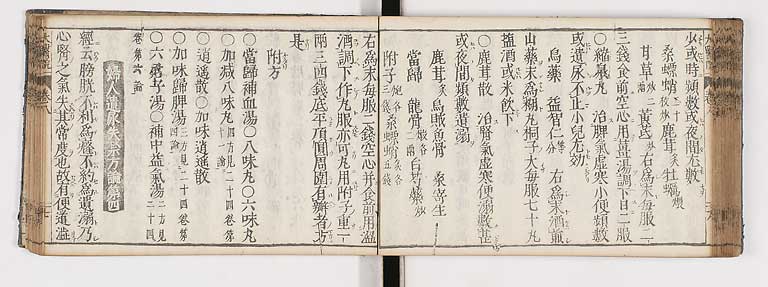 少或時頻數或夜間無數
桑螵蛸三十枚炒 鹿茸炙 牡蠣煆
甘草炒二 黃芪 右爲末每服二
三錢食前空心用薑湯調下日二服
○縮泉丸 治脬氣虛寒小便頻數
或遺尿不止小兒尤効
烏藥 益智仁等分 右爲末酒煎
山藥末爲糊丸桐子大每服七十丸
鹽酒或米飲下
○鹿茸散 治腎氣虛寒便溺數甚
或夜間頻數遺溺
鹿茸炙 烏賊魚骨 桑寄生
當歸 龍骨煆各二兩 白芍藥炒
附子三錢 桑螵蛸五錢
右爲末每服二錢空心并食前用溫
酒調下作丸服亦可丸用附子重一
兩三四錢底平項圓周圍有瓣者方
是
附方
○當歸補血湯 ○八味丸 ○六味丸
○加減八味丸四方見二十四卷第十一論
○逍遙散 ○加味逍遙散
○加味歸脾湯三方見二十四卷第四論
○六君子湯 ○補中益氣湯二十四卷第六論
婦人遺尿失禁方論第四
經云膀胱不利爲癃不約爲遺溺乃
心腎之氣失其常度也故有便道澁